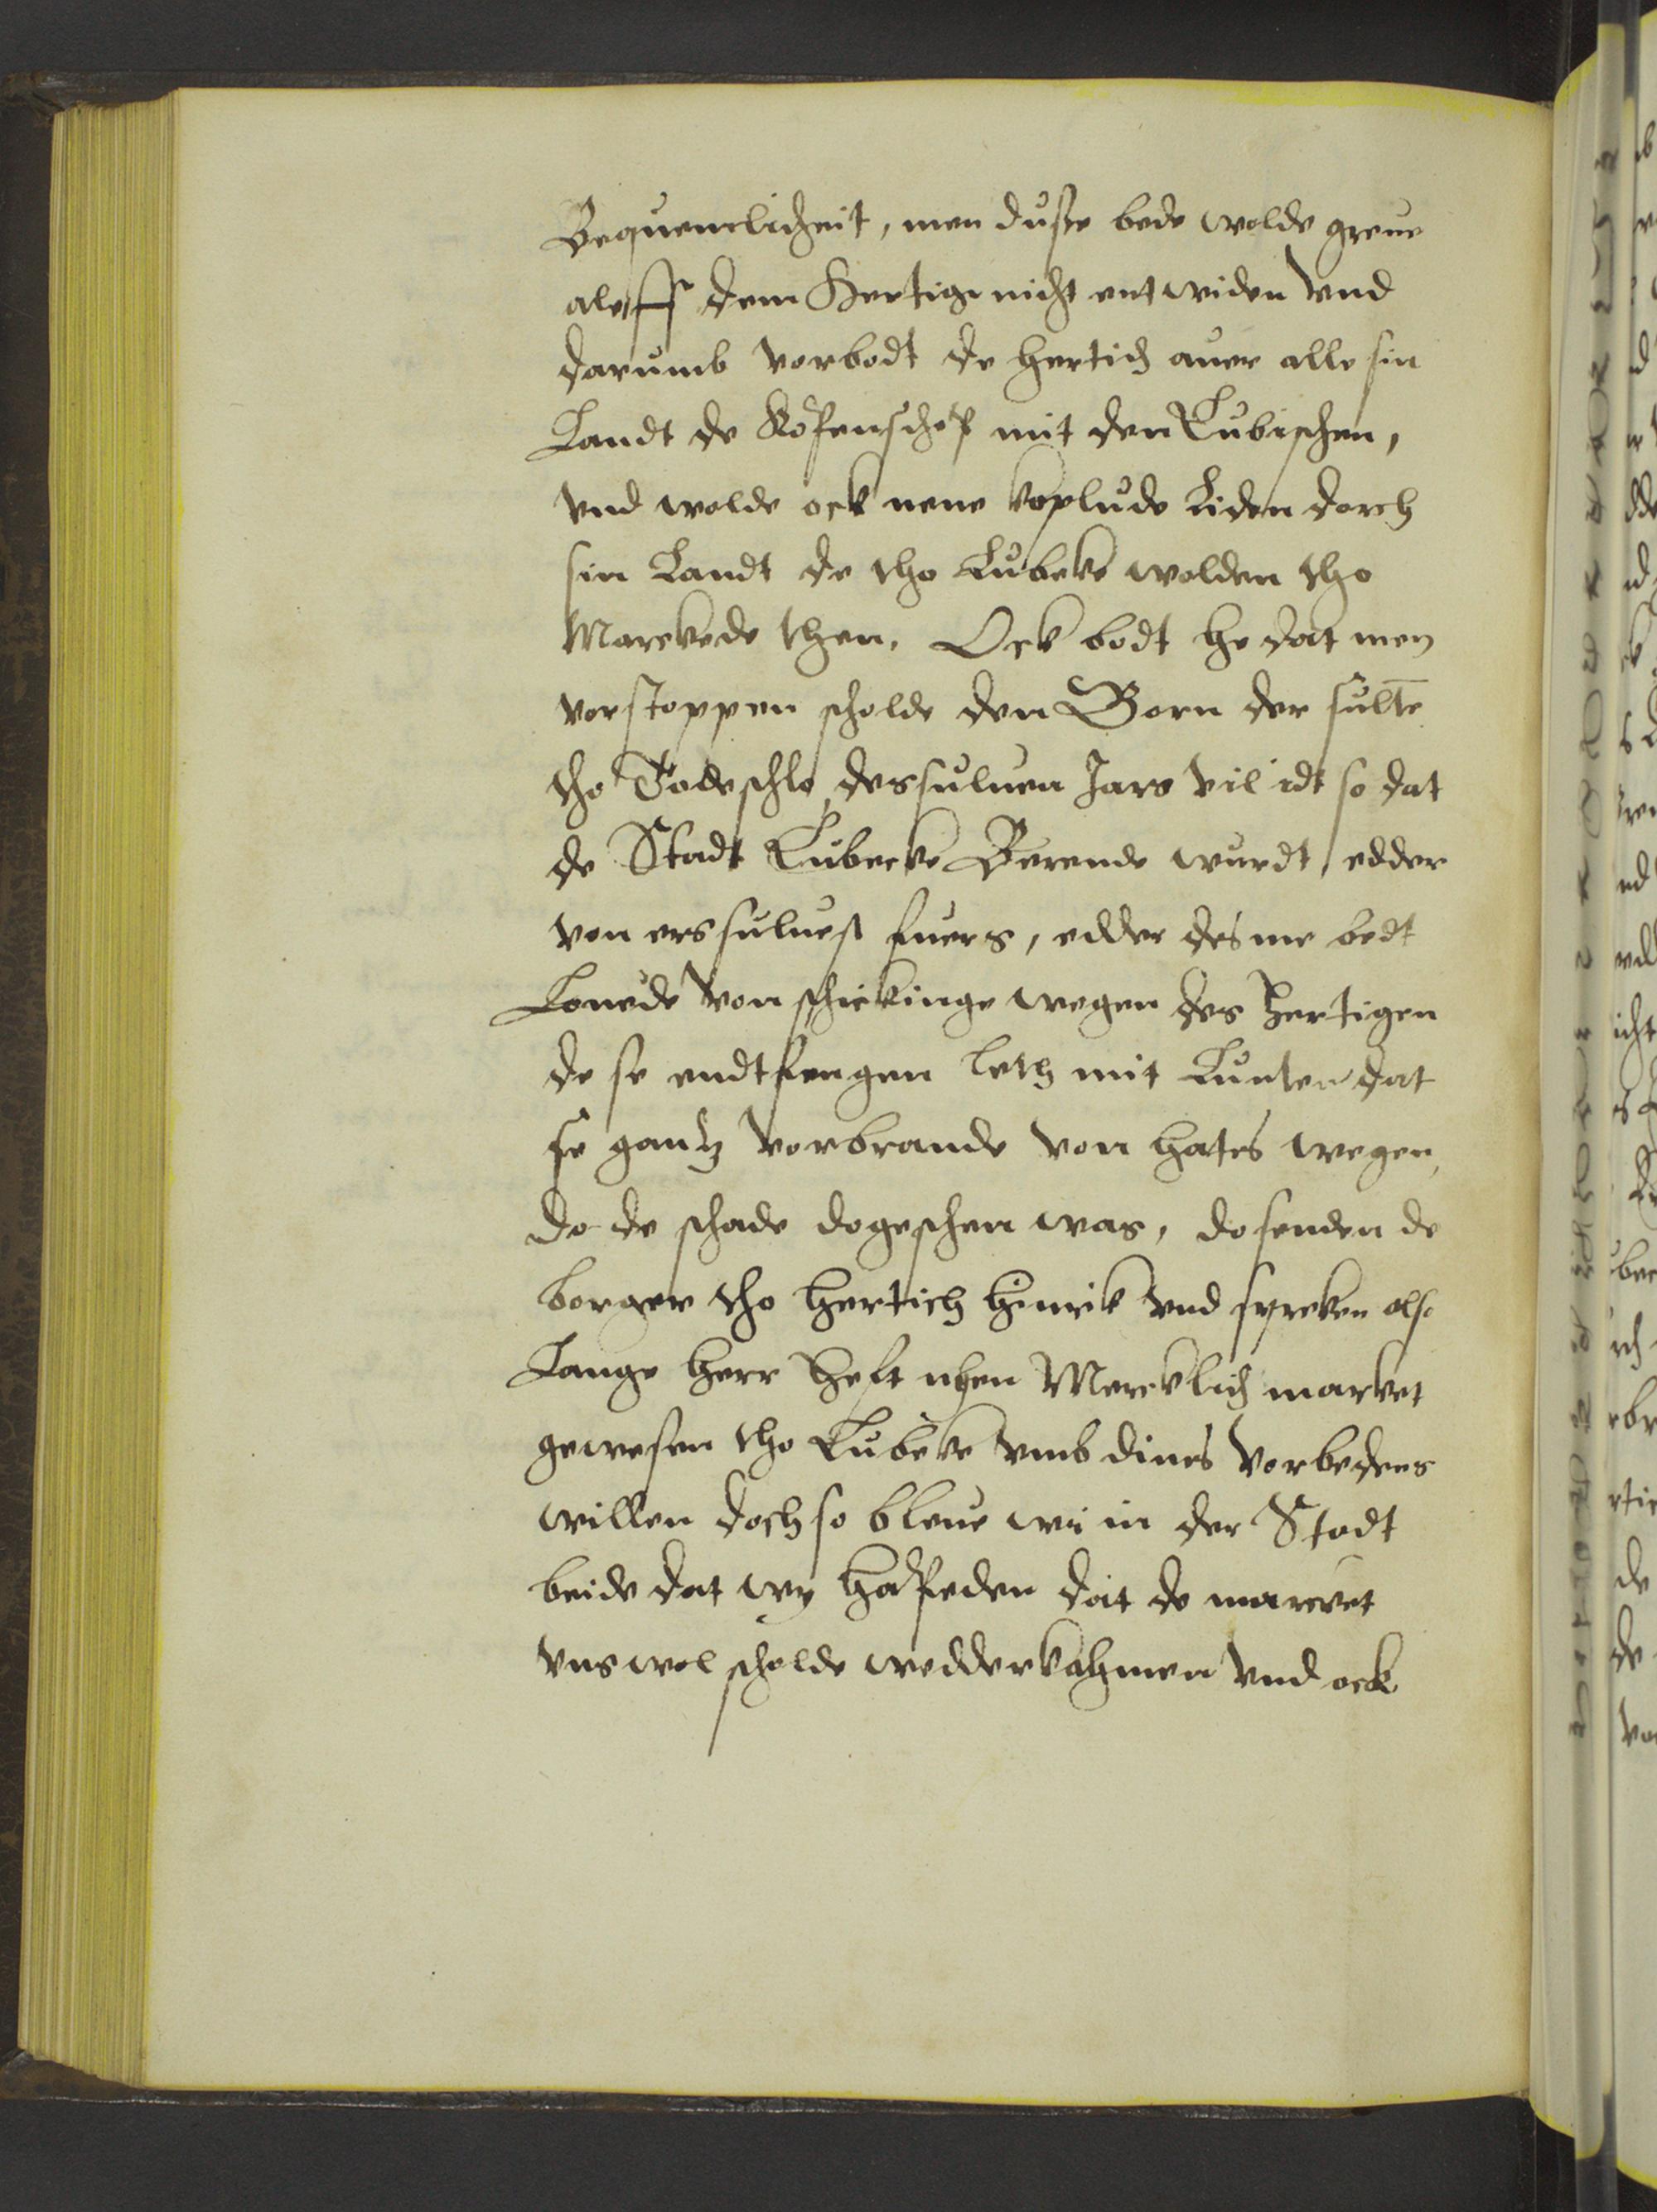 Bequemlicheit, men duße bede wolde greue
aleff dem Hertige nicht entwiden vnd
darumb vorbodt de hertich auer alle sin
Landt de Kopenschop mit den Lubischen,
vnd wolde ock nene koplude Liden dorch
sin Landt de tho Lubeke wolden tho
Marckede then. Ock bodt he dat men
vorstoppen scholde den Born der sulte
tho Todeschlo, dessuluen Jars vil idt so dat
de Stadt Lubecke Berende wurdt, edder
von ers suluest fuers, edder des me bedt
Louede von schickinge wegen des Hertigen
de se endtfengen leth mit Lunten dat
se gantz vorbrande von hates wegen,
do de schade do geschen was, do senden de
borger tho hertich hinrik vnd spreken also
Lange herr heft nhen Mercklich market
gewesen tho Lubeke vmb dines vorbedens
willen doch so bleue wi in der Stadt
beide dat wy hapeden dat de marcket
vns wol scholde wedderkahmen vnd ock